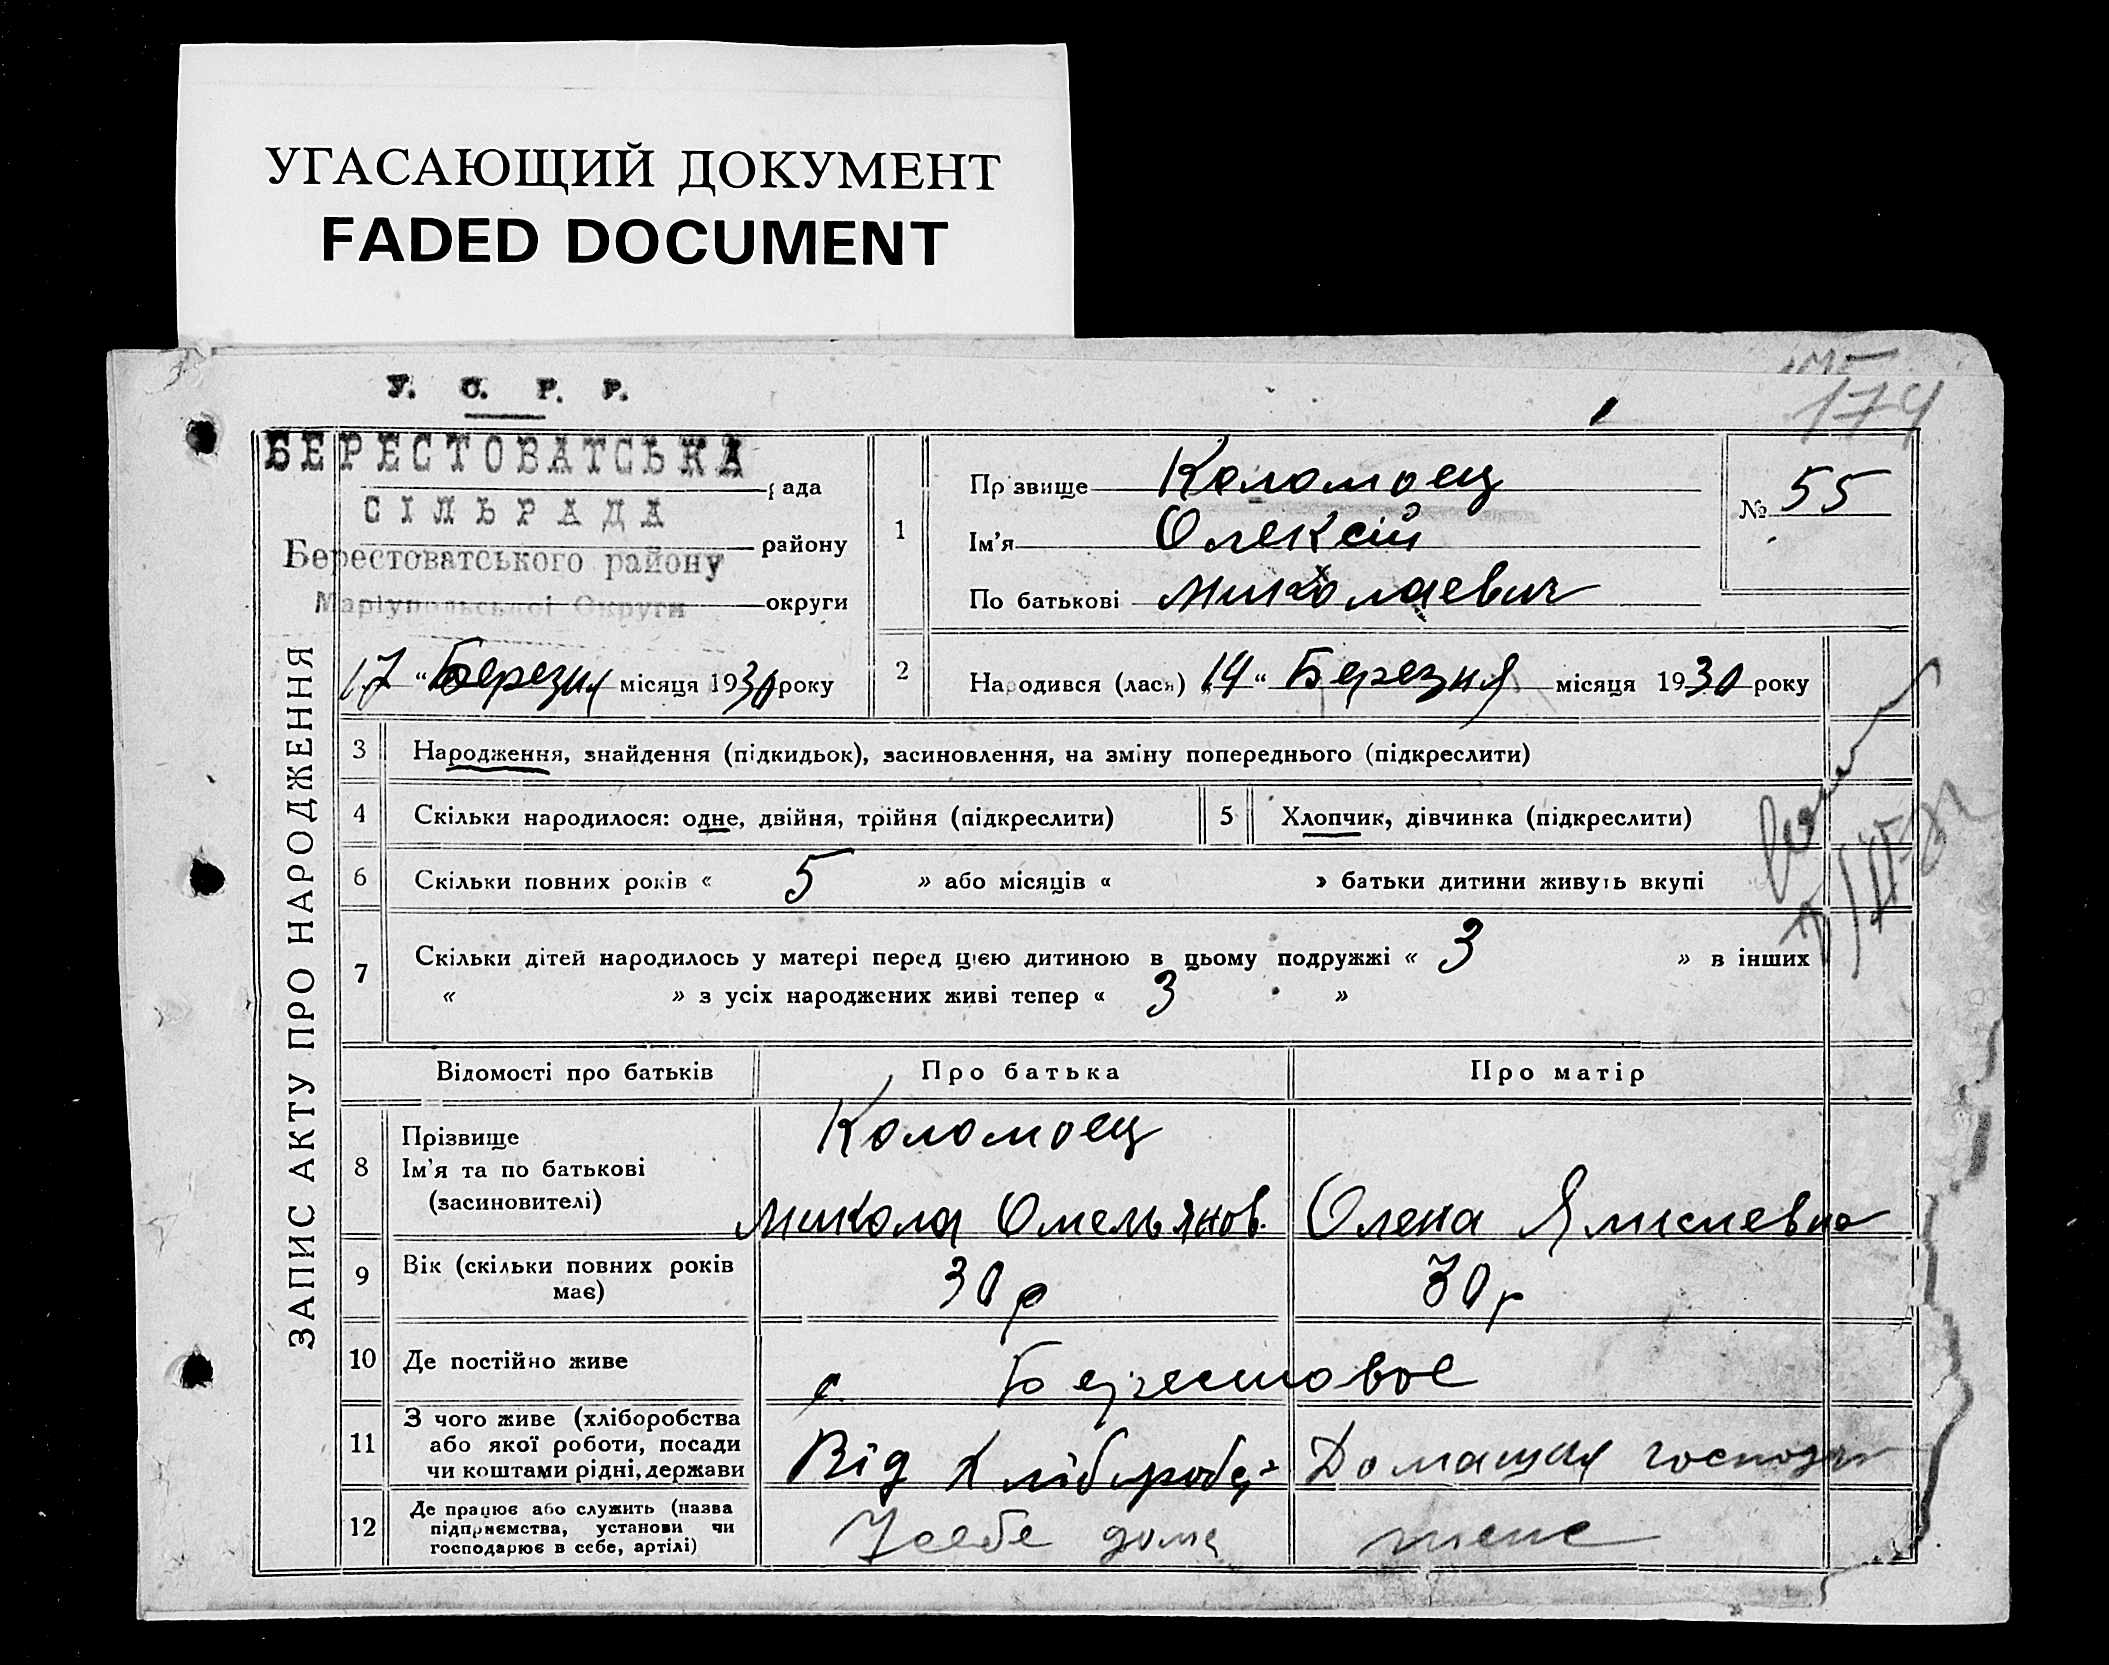 УГАСАЮЩИЙ ДОКУМЕНТ
FADED DOCUMENT
174
У. С. Р. Р.
БЕРЕСТОВАТСЬКА рада
СІЛЬРАДА
Берестоватського району району
Маріупольської Округи округи
17 " Березня місяця 1930 року
ЗАПИС АКТУ ПРО НАРОДЖЕННЯ
1 Прізвище Коломоец
Ім'я Олексій
По батькові Миколаевич
№ 55
2 Народився (лася) 14 " Березня місяця 1930 року
3 Народження, знайдення (підкидьок), засиновлення, на зміну попереднього (підкреслити)
4 Скільки народилося: одне, двійня, трійня (підкреслити)
5 Хлопчик, дівчинка (підкреслити)
6 Скільки повних років « 5 » або місяців « » батьки дитини живуть вкупі
7 Скільки дітей народилось у матері перед цією дитиною в цьому подружжі « 3 » в інших
« » з усіх народжених живі тепер « 3 »
Відомості про батьків Про батька Про матір
8 Прізвище
Ім'я та по батькові
(засиновителі)
Коломоец
Микола Омельянов.
Олена
9 Вік (скільки повних років
має)
30 р
30 р
10 Де постійно живе
с. Берестовое
11 З чого живе (хліборобства
або якої роботи, посади
чи коштами рідні, держави
Від
Домашня господар
12 Де працює або служить (назва
підприємства, установи чи
господарює в себе, артілі)
У себе дома
теже